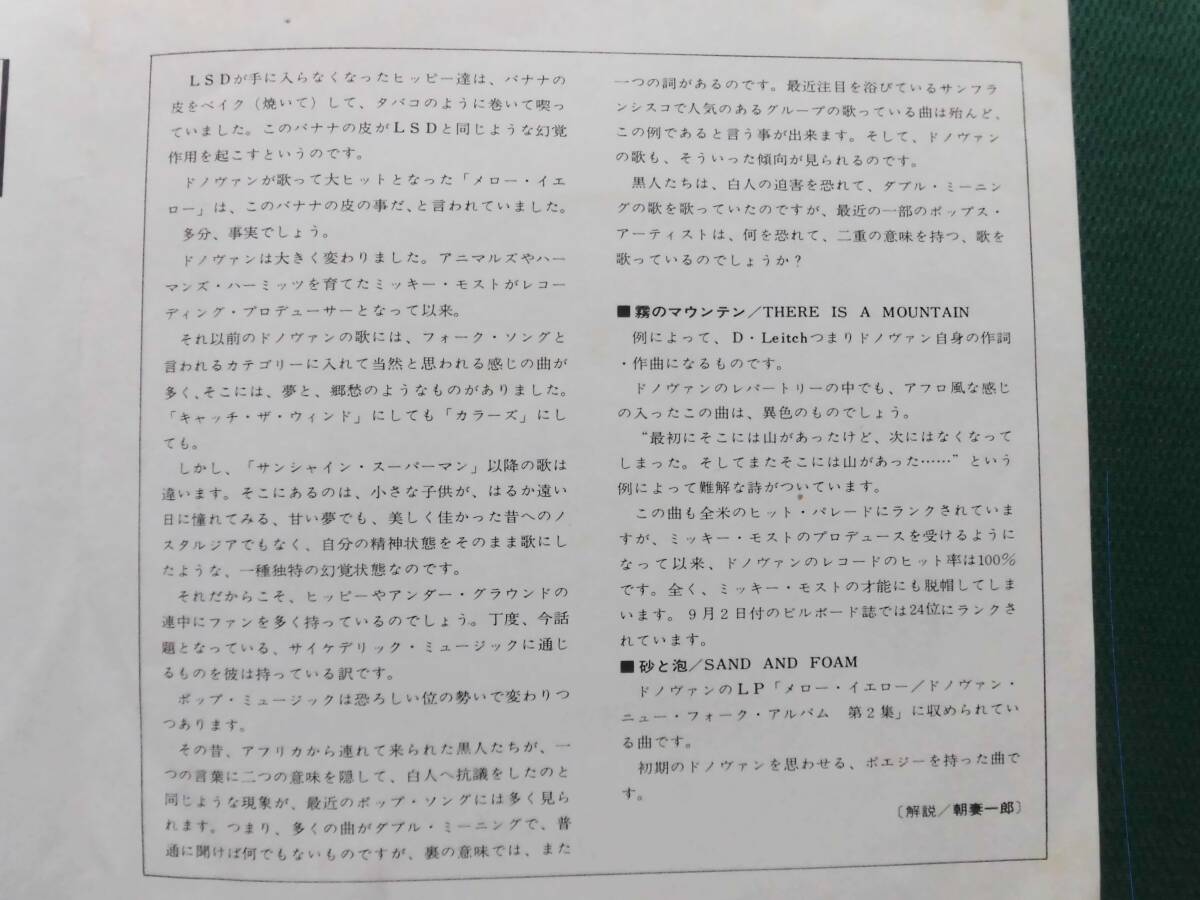 LSDが手に入らなくなったヒッピー達は、バナナの
皮をベイク（焼いて）して、タバコのように巻いて喫っ
ていました。このバナナの皮がLSDと同じような幻覚
作用を起こすというのです。
ドノヴァンが歌って大ヒットとなった「メロー・イエ
ロー」は、このバナナの皮の事だ、と言われていました。
多分、事実でしょう。
ドノヴァンは大きく変わりました。アニマルズやハー
マンズ・ハーミッツを育てたミッキー・モストがレコー
ディング・プロデューサーとなって以来。
それ以前のドノヴァンの歌には、フォーク・ソングと
言われるカテゴリーに入れて当然と思われる感じの曲が
多く、そこには、夢と、郷愁のようなものがありました。
「キャッチ・ザ・ウィンド」にしても「カラーズ」にし
ても。
しかし、「サンシャイン・スーパーマン」以降の歌は
違います。そこにあるのは、小さな子供が、はるか遠い
日に憧れてみる、甘い夢でも、美しく佳かった昔へのノ
スタルジアでもなく、自分の精神状態をそのまま歌にし
たような、一種独特の幻覚状態なのです。
それだからこそ、ヒッピーやアンダー・グラウンドの
連中にファンを多く持っているのでしょう。丁度、今話
題となっている、サイケデリック・ミュージックに通じ
るものを彼は持っている訳です。
ポップ・ミュージックは恐ろしい位の勢いで変わりつ
つあります。
その昔、アフリカから連れて来られた黒人たちが、一
つの言葉に二つの意味を隠して、白人へ抗議をしたのと
同じような現象が、最近のポップ・ソングには多く見ら
れます。つまり、多くの曲がダブル・ミーニングで、普
通に聞けば何でもないものですが、裏の意味では、また
一つの詞があるのです。最近注目を浴びているサンフラ
ンシスコで人気のあるグループの歌っている曲は殆んど、
この例であると言う事が出来ます。そして、ドノヴァン
の歌も、そういった傾向が見られるのです。
黒人たちは、白人の迫害を恐れて、ダブル・ミーニン
グの歌を歌っていたのですが、最近の一部のポップス・
アーティストは、何を恐れて、二重の意味を持つ、歌を
歌っているのでしょうか？
■霧のマウンテン／THERE IS A MOUNTAIN
例によって、D・Leitchつまりドノヴァン自身の作詞
・作曲になるものです。
ドノヴァンのレパートリーの中でも、アフロ風な感じ
の入ったこの曲は、異色のものでしょう。
“最初にそこには山があったけど、次にはなくなって
しまった。そしてまたそこには山があった……”という
例によって難解な詩がついています。
この曲も全米のヒット・パレードにランクされていま
すが、ミッキー・モストのプロデュースを受けるように
なって以来、ドノヴァンのレコードのヒット率は100%
です。全く、ミッキー・モストの才能にも脱帽してしま
います。9月2日付のビルボード誌では24位にランクさ
れています。
■砂と泡／SAND AND FOAM
ドノヴァンのLP「メロー・イエロー／ドノヴァン・
ニュー・フォーク・アルバム 第2集」に収められてい
る曲です。
初期のドノヴァンを思わせる、ポエジーを持った曲で
す。
〔解説／朝妻一郎〕